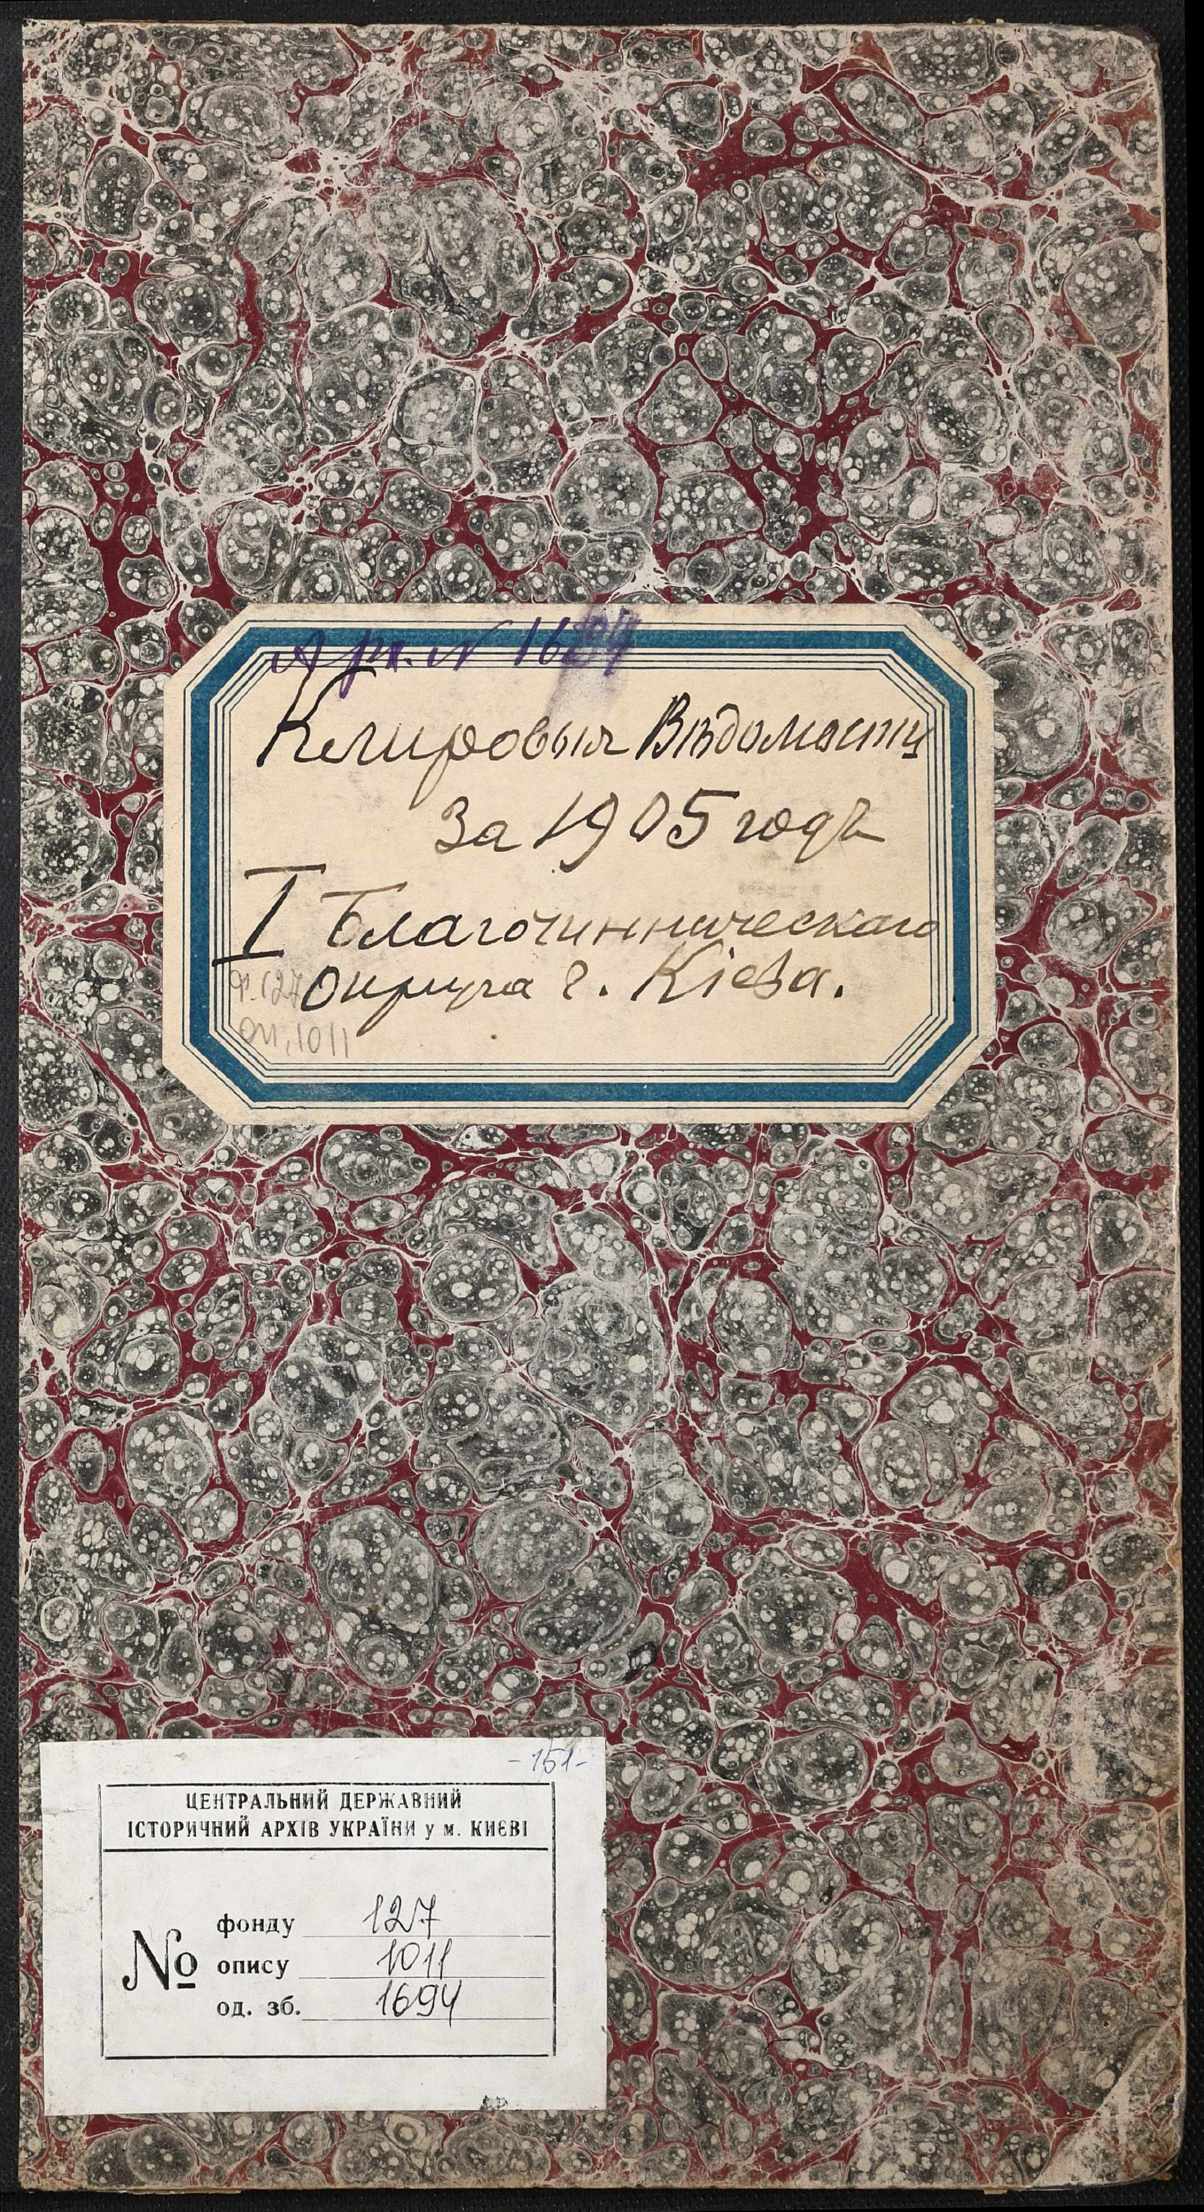 Арх. N 1694
Клировыя Вѣдомости
за 1905 годъ
I Благочинническаго
округа г. Кіева.
ф. 127
оп. 1011
-151-
ЦЕНТРАЛЬНИЙ ДЕРЖАВНИЙ
ІСТОРИЧНИЙ АРХІВ УКРАЇНИ у м. КИЄВІ
№
фонду 127
опису 1011
од. зб. 1694